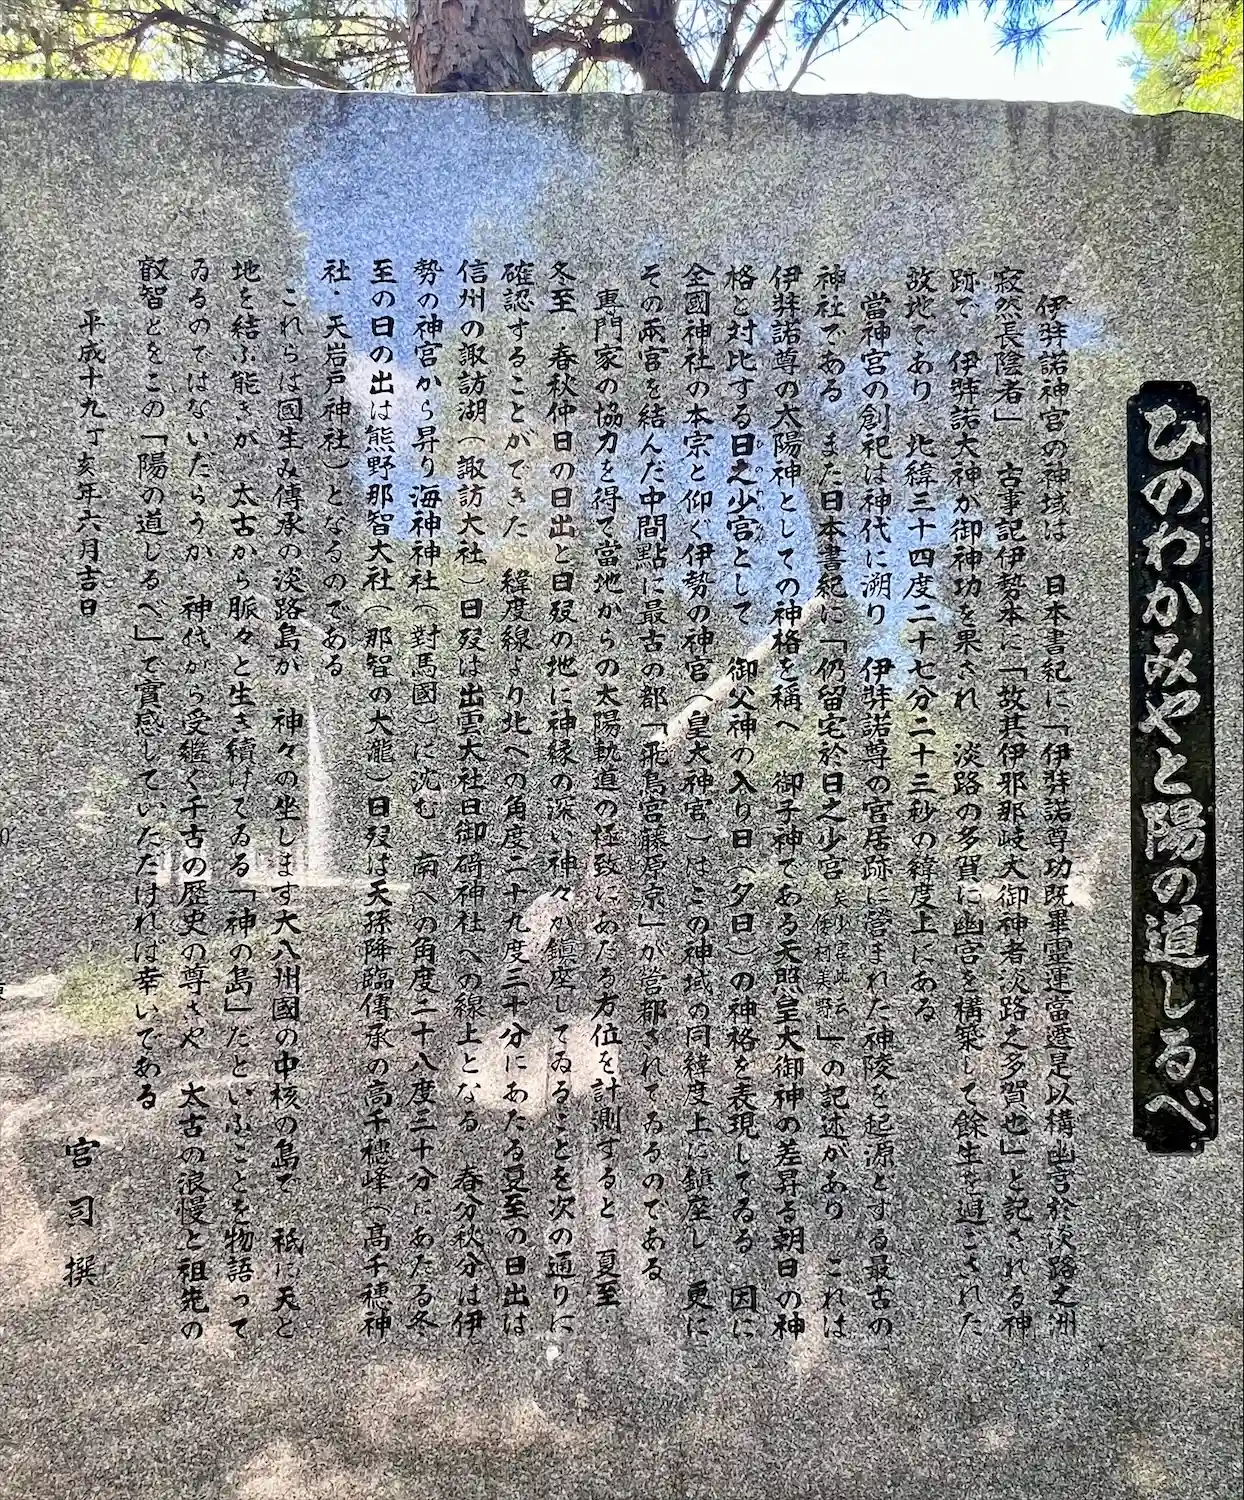 ひのわかみやと陽の道しるべ
伊弉諾神宮の神域は 日本書紀に「伊弉諾尊功既畢靈運當遷是以構幽宮於淡路之洲
寂然長隱者」 古事記伊勢本に「故其伊邪那岐大御神者淡路之多賀也」と記される神
跡で 伊弉諾大神が御神功を果され 淡路の多賀に幽宮を構築して餘生を過ごされた
故地であり 北緯三十四度二十七分二十三秒の緯度上にある
當神宮の創祀は神代に溯り 伊弉諾尊の宮居跡に營まれた神陵を起源とする最古の
神社である また日本書紀に「仍留宅於日之少宮」の記述があり これは
伊弉諾尊の太陽神としての神格を稱へ 御子神である天照皇大御神の差昇る朝日の神
格と対比する日之少宮として 御父神の入り日(夕日)の神格を表現してゐる 因に
全國神社の本宗と仰ぐ伊勢の神宮(皇大神宮)はこの神域の同緯度上に鎮座し 更に
その兩宮を結んだ中間點に最古の都「飛鳥宮藤原京」が營都されてゐるのである
專門家の協力を得て當地からの太陽軌道の極致にあたる方位を計測すると 夏至・
冬至・春秋仲日の日出と日歿の地に神縁の深い神々が鎮座してゐることを次の通りに
確認することができた 緯度線より北への角度二十九度三十分にあたる夏至の日出は
信州の諏訪湖(諏訪大社)日歿は出雲大社日御碕神社への線上となる 春分秋分は伊
勢の神宮から昇り海神神社(對馬國)に沈む 南への角度二十八度三十分にあたる冬
至の日の出は熊野那智大社(那智の大瀧)日歿は天孫降臨傳承の高千穗峰(高千穗神
社・天岩戸神社)となるのである
これらは國生み傳承の淡路島が 神々の坐します大八州國の中核の島で 祇に天と
地を結ぶ能きが 太古から脈々と生き續けてゐる「神の島」だといふことを物語って
ゐるのではないだらうか 神代から受繼ぐ千古の歷史の尊さや 太古の浪漫と祖先の
叡智とをこの「陽の道しるべ」で實感していただければ幸いである
平成十九丁亥年六月吉日
宮司 撰